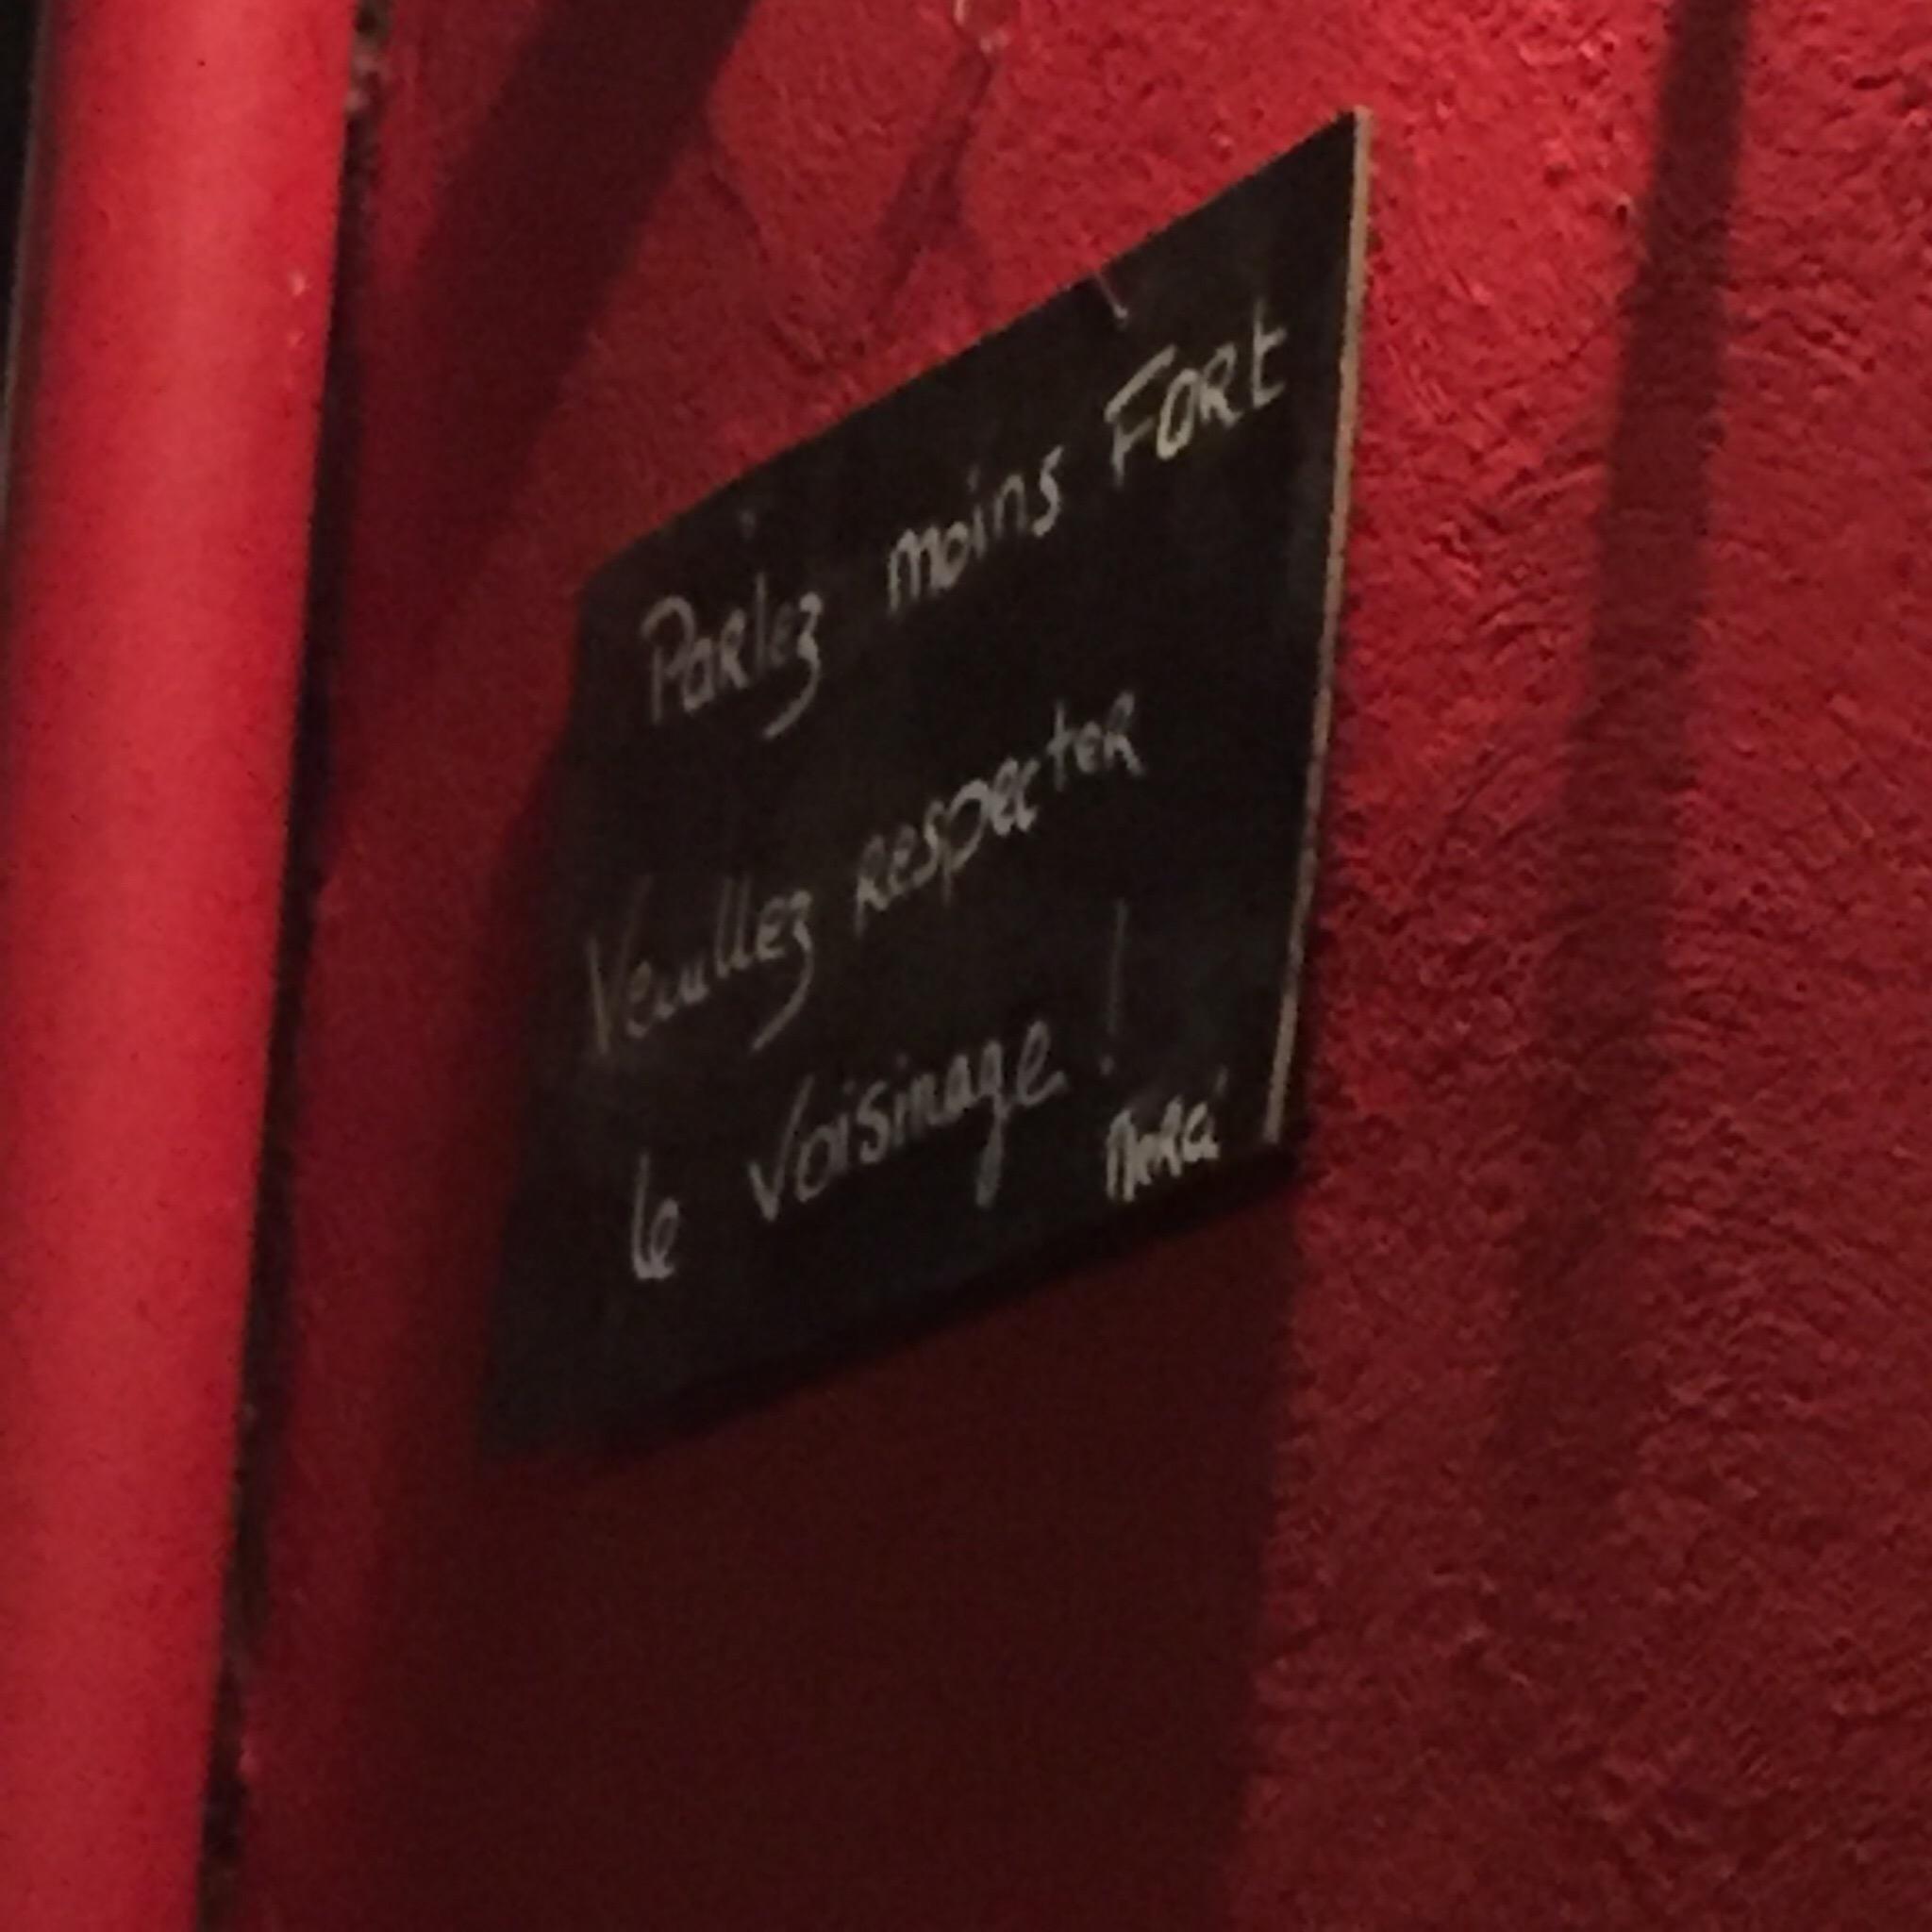 Parlez moins FORt
Veuillez respecter
le Voisinage !
Merci